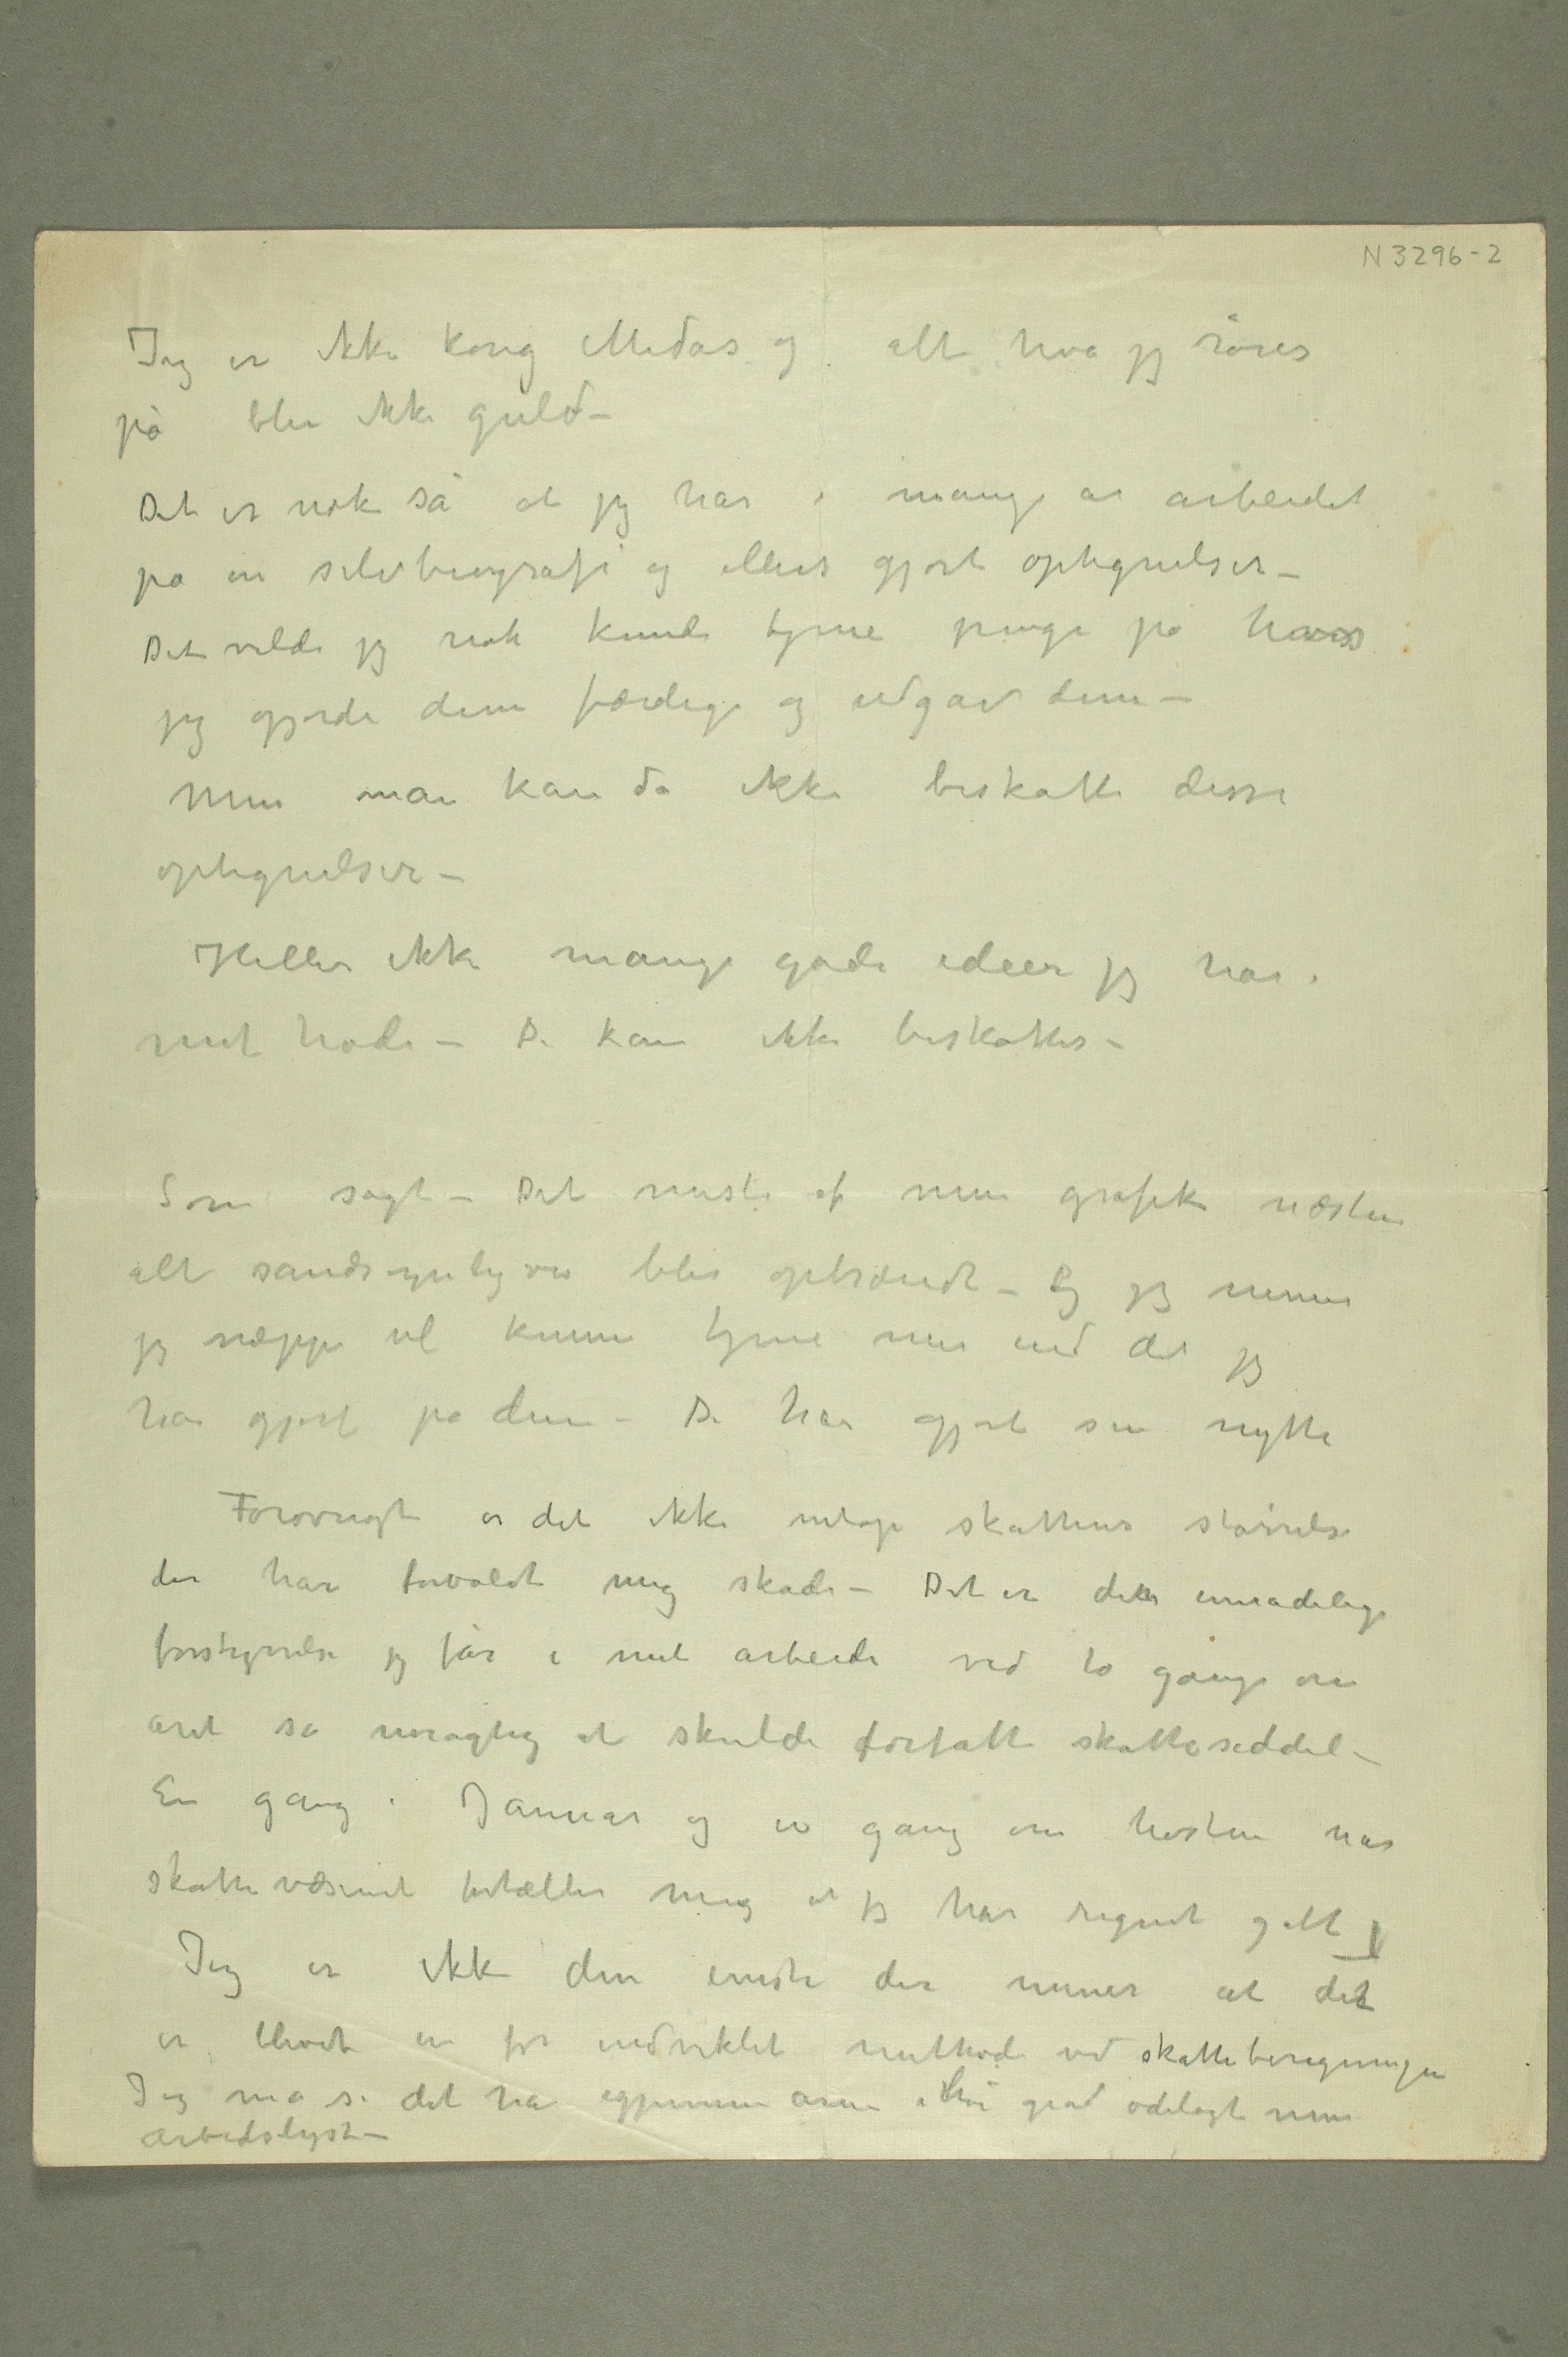 N 3296-2
Jeg er ikke kong Midas og alt hva jeg rører
på blir ikke guld –
Det er nok så at jeg har i mange år arbeidet
på en selvbiografi og ellers gjort optegnelser –
Det vilde jeg nok kunde tjene penge på hvis
jeg gjorde dem færdige og udgav dem –
Men man kan da ikke beskatte disse
optegnelser –
Heller ikke mange gode ideer jeg har i
mit hode – De kan ikke beskattes –
Som sagt – Det meste af min grafik næsten
alt sandsynligvis blir opbrændt – Og jeg mener
jeg næppe vil kunne tjene mer end det jeg
har gjort på dem – De har gjort sin nytte
Forøvrigt er det ikke netop skattens størrelse
der har forvoldt mig skade – Det er den umådelige
forstyrrelse jeg får i mit arbeide ved to gange om
året så nøiagtig at skulde forfatte skatteseddel –
En gang i Januar og en gang om høsten når
skattevæsenet fortæller mig at jeg har regnet galt
Jeg er ikke den eneste der mener at det
er blevet en for indviklet methode ved skatteberegningen
Jeg må si det har igjennem årene i høi grad ødelagt min
arbeidslyst –